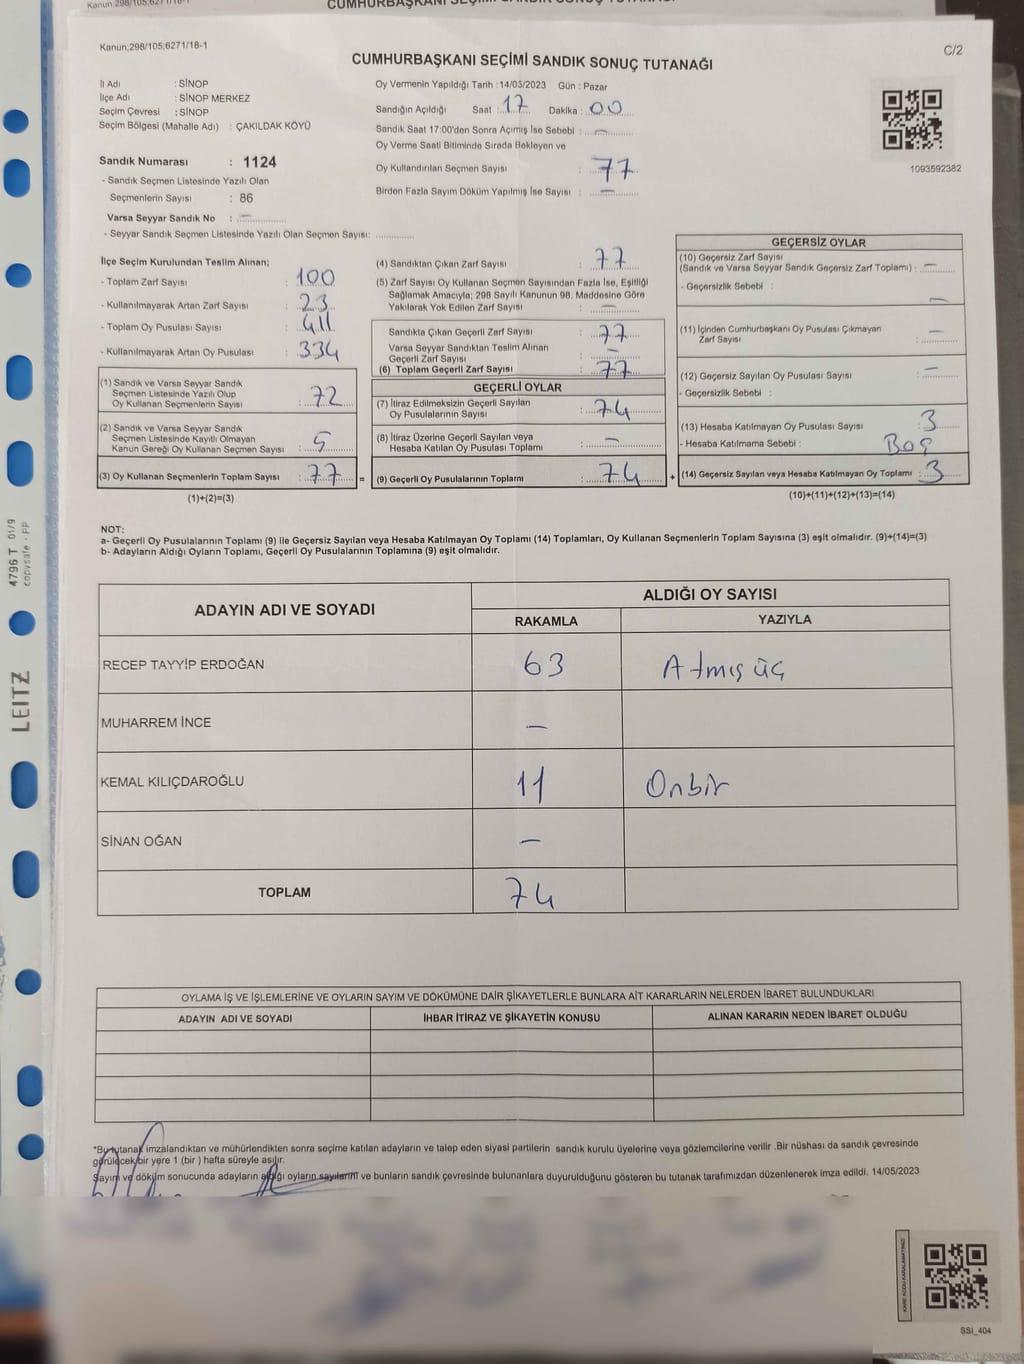 Kanun;298/105;6271/18-1
C/2
CUMHURBAŞKANI SEÇİMİ SANDIK SONUÇ TUTANAĞI
İl Adı : SİNOP
İlçe Adı : SİNOP MERKEZ
Seçim Çevresi : SİNOP
Seçim Bölgesi (Mahalle Adı) : ÇAKILDAK KÖYÜ
Sandık Numarası : 1124
- Sandık Seçmen Listesinde Yazılı Olan
Seçmenlerin Sayısı : 86
Varsa Seyyar Sandık No : –
- Seyyar Sandık Seçmen Listesinde Yazılı Olan Seçmen Sayısı: ............
Oy Vermenin Yapıldığı Tarih :14/05/2023 Gün : Pazar
Sandığın Açıldığı Saat : 17 Dakika : 00
Sandık Saat 17:00'den Sonra Açılmış İse Sebebi : –
Oy Verme Saati Bitiminde Sırada Bekleyen ve
Oy Kullandırılan Seçmen Sayısı : 77
Birden Fazla Sayım Döküm Yapılmış İse Sayısı : –
1093592382
İlçe Seçim Kurulundan Teslim Alınan;
- Toplam Zarf Sayısı : 100
- Kullanılmayarak Artan Zarf Sayısı : 23
- Toplam Oy Pusulası Sayısı : 411
- Kullanılmayarak Artan Oy Pusulası : 334
(1) Sandık ve Varsa Seyyar Sandık
Seçmen Listesinde Yazılı Olup
Oy Kullanan Seçmenlerin Sayısı : 72
(2) Sandık ve Varsa Seyyar Sandık
Seçmen Listesinde Kayıtlı Olmayan
Kanun Gereği Oy Kullanan Seçmen Sayısı : 5
(3) Oy Kullanan Seçmenlerin Toplam Sayısı : 77 =
(1)+(2)=(3)
(4) Sandıktan Çıkan Zarf Sayısı : 77
(5) Zarf Sayısı Oy Kullanan Seçmen Sayısından Fazla İse, Eşitliği
Sağlamak Amacıyla; 298 Sayılı Kanunun 98. Maddesine Göre
Yakılarak Yok Edilen Zarf Sayısı : –
Sandıkta Çıkan Geçerli Zarf Sayısı : 77
Varsa Seyyar Sandıktan Teslim Alınan
Geçerli Zarf Sayısı : –
(6) Toplam Geçerli Zarf Sayısı : 77
GEÇERLİ OYLAR
(7) İtiraz Edilmeksizin Geçerli Sayılan
Oy Pusulalarının Sayısı : 74
(8) İtiraz Üzerine Geçerli Sayılan veya
Hesaba Katılan Oy Pusulası Toplamı : –
(9) Geçerli Oy Pusulalarının Toplamı : 74 +
GEÇERSİZ OYLAR
(10) Geçersiz Zarf Sayısı
(Sandık ve Varsa Seyyar Sandık Geçersiz Zarf Toplamı) : –
- Geçersizlik Sebebi : –
(11) İçinden Cumhurbaşkanı Oy Pusulası Çıkmayan
Zarf Sayısı : –
(12) Geçersiz Sayılan Oy Pusulası Sayısı : –
- Geçersizlik Sebebi :
(13) Hesaba Katılmayan Oy Pusulası Sayısı : 3
- Hesaba Katılmama Sebebi : Boş
(14) Geçersiz Sayılan veya Hesaba Katılmayan Oy Toplamı : 3
(10)+(11)+(12)+(13)=(14)
NOT:
a- Geçerli Oy Pusulalarının Toplamı (9) ile Geçersiz Sayılan veya Hesaba Katılmayan Oy Toplamı (14) Toplamları, Oy Kullanan Seçmenlerin Toplam Sayısına (3) eşit olmalıdır. (9)+(14)=(3)
b- Adayların Aldığı Oyların Toplamı, Geçerli Oy Pusulalarının Toplamına (9) eşit olmalıdır.
ADAYIN ADI VE SOYADI ALDIĞI OY SAYISI
RAKAMLA YAZIYLA
RECEP TAYYİP ERDOĞAN 63 Atmış üç
MUHARREM İNCE –
KEMAL KILIÇDAROĞLU 11 Onbir
SİNAN OĞAN –
TOPLAM 74
OYLAMA İŞ VE İŞLEMLERİNE VE OYLARIN SAYIM VE DÖKÜMÜNE DAİR ŞİKAYETLERLE BUNLARA AİT KARARLARIN NELERDEN İBARET BULUNDUKLARI
ADAYIN ADI VE SOYADI İHBAR İTİRAZ VE ŞİKAYETİN KONUSU ALINAN KARARIN NEDEN İBARET OLDUĞU
*Bu tutanak imzalandıktan ve mühürlendikten sonra seçime katılan adayların ve talep eden siyasi partilerin sandık kurulu üyelerine veya gözlemcilerine verilir .Bir nüshası da sandık çevresinde
görülecek bir yere 1 (bir ) hafta süreyle asılır.
Sayım ve döküm sonucunda adayların aldığı oyların sayılarını ve bunların sandık çevresinde bulunanlara duyurulduğunu gösteren bu tutanak tarafımızdan düzenlenerek imza edildi. 14/05/2023
SSI_404
LEITZ
4796 T 01/9
copysafe - PP